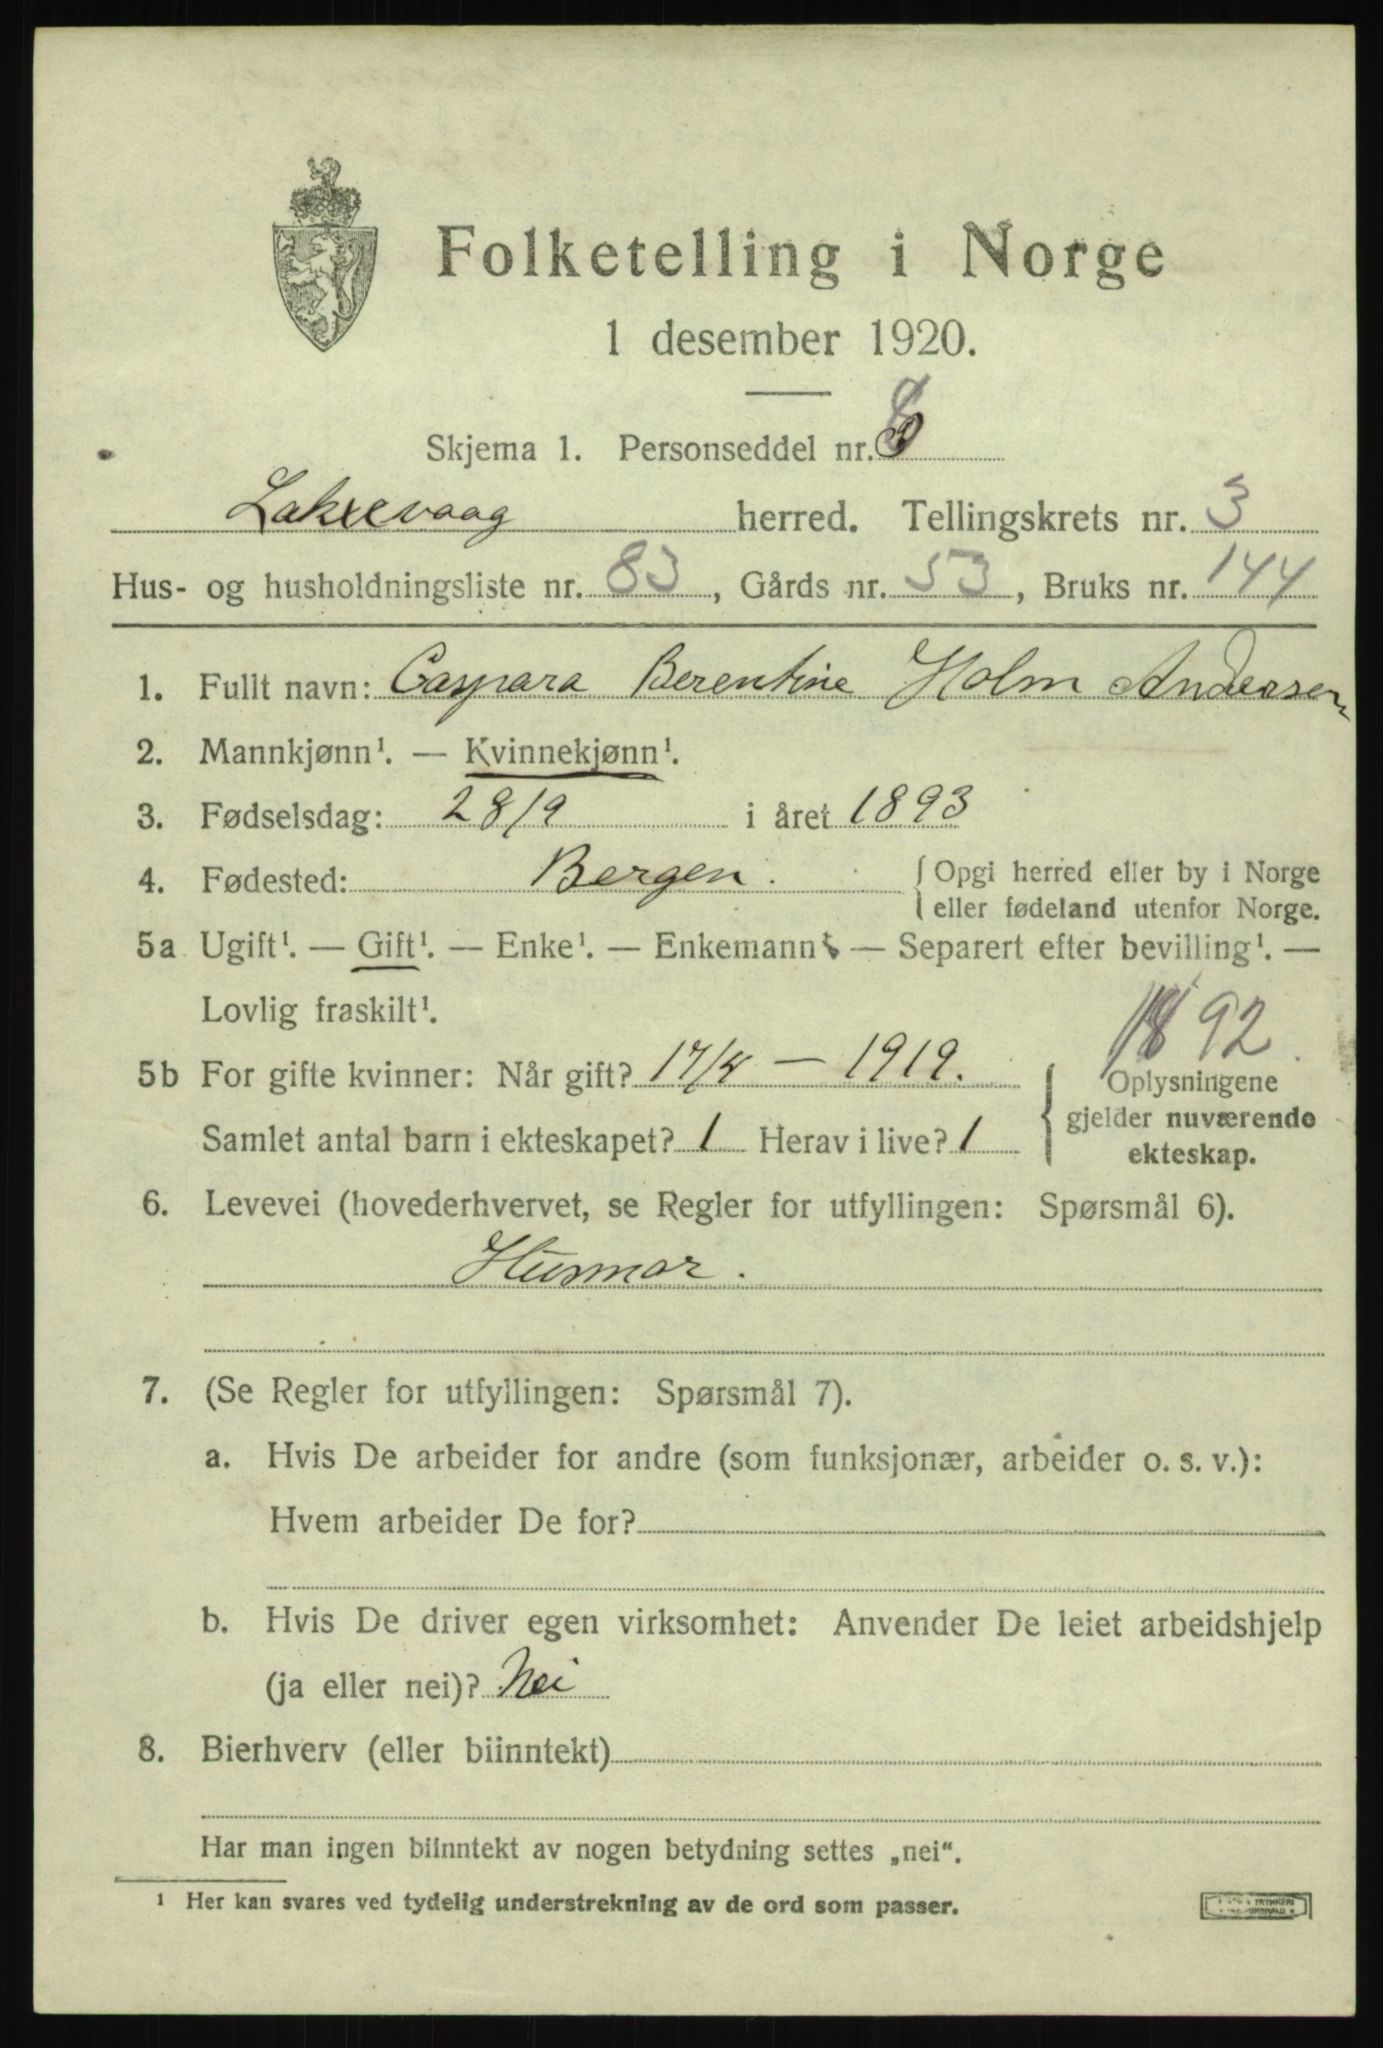 Folketelling i Norge
1 desember 1920.
Skjema 1. Personseddel nr.
Laksevaag herred. Tellingskrets nr. 3
Hus- og husholdningsliste nr. 83, Gårds nr. 53, Bruks nr. 144
1. Fullt navn: Caspara Berentine Holm Andersen
2. Mannkjønn¹. — Kvinnekjønn¹.
3. Fødselsdag: 28/9 i året 1893
4. Fødested: Bergen. { Opgi herred eller by i Norge
eller fødeland utenfor Norge.
5a Ugift¹. — Gift¹. — Enke¹. — Enkemann — Separert efter bevilling¹. —
Lovlig fraskilt¹.
1892
5b For gifte kvinner: Når gift? 17/4 — 1919.
Samlet antal barn i ekteskapet? 1 Herav i live? 1
{ Oplysningene
gjelder nuværende
ekteskap.
6. Levevei (hovederhvervet, se Regler for utfyllingen: Spørsmål 6).
Husmor.
7. (Se Regler for utfyllingen: Spørsmål 7).
a. Hvis De arbeider for andre (som funksjonær, arbeider o. s. v.):
Hvem arbeider De for?
b. Hvis De driver egen virksomhet: Anvender De leiet arbeidshjelp
(ja eller nei)? Nei
8. Bierhverv (eller biinntekt)
Har man ingen biinntekt av nogen betydning settes „nei“.
¹ Her kan svares ved tydelig understrekning av de ord som passer.